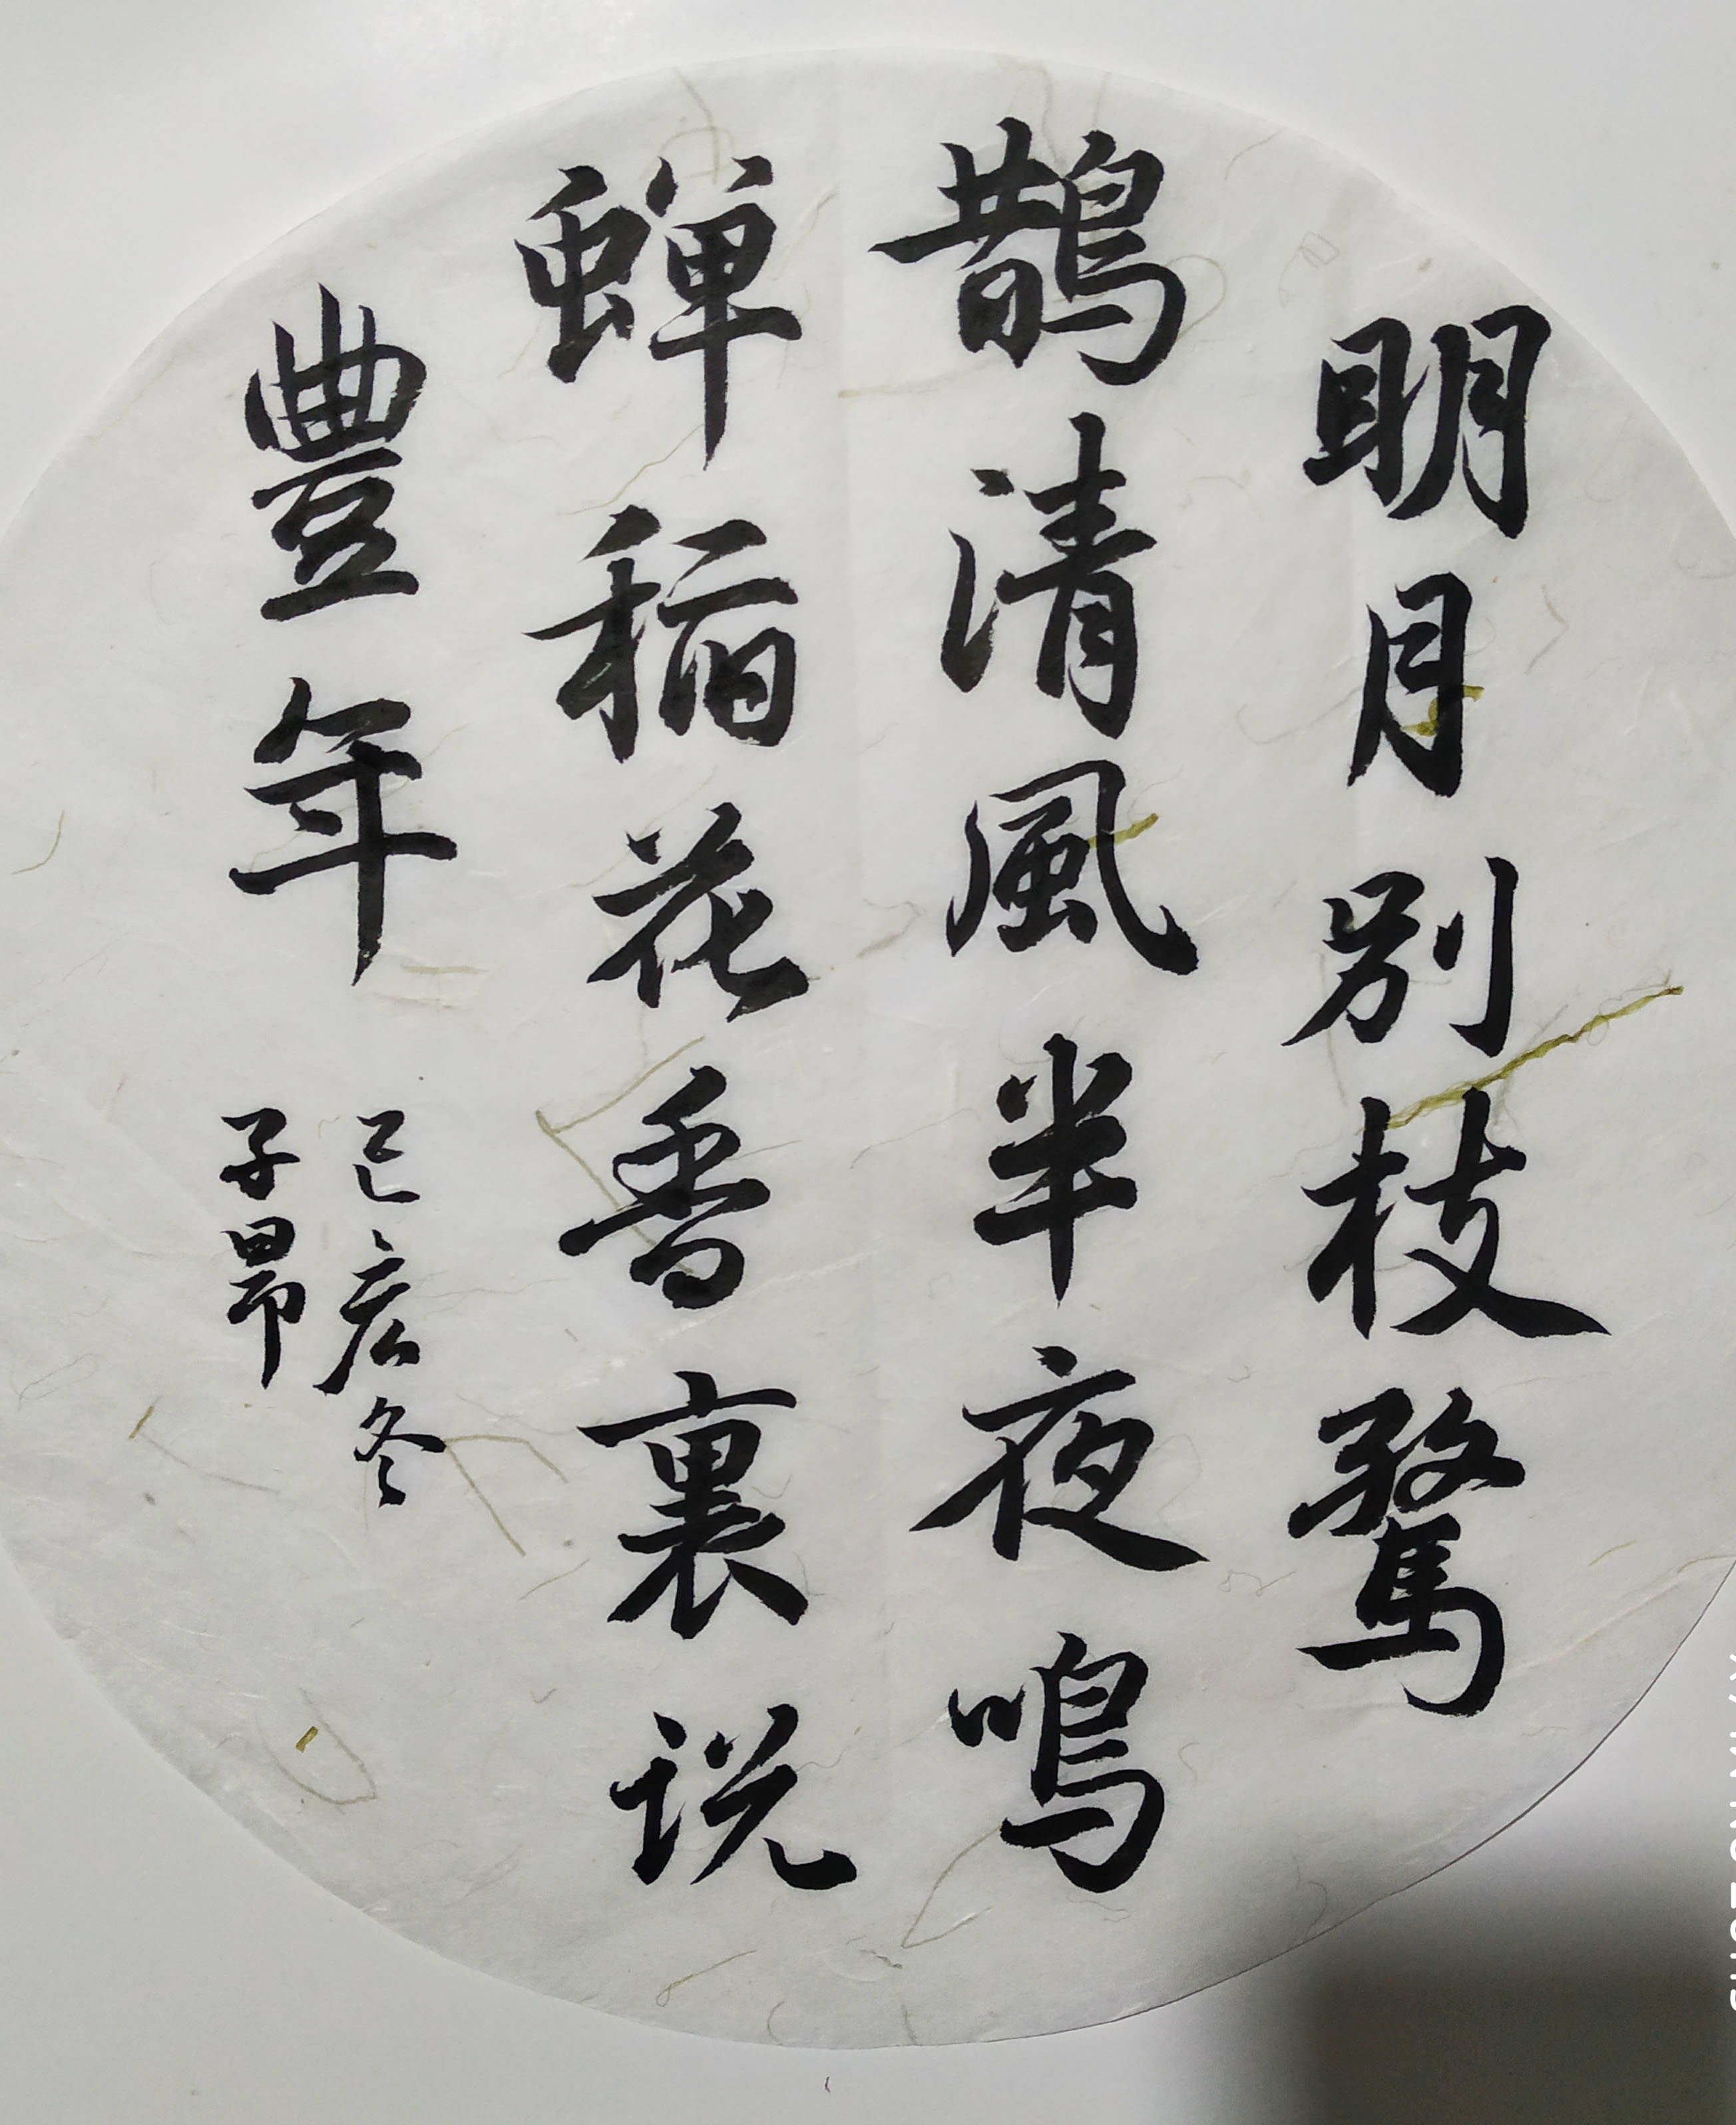 明月别枝驚
鵲清風半夜鳴
蝉稻花香裏说
豐年
己亥冬
子昂